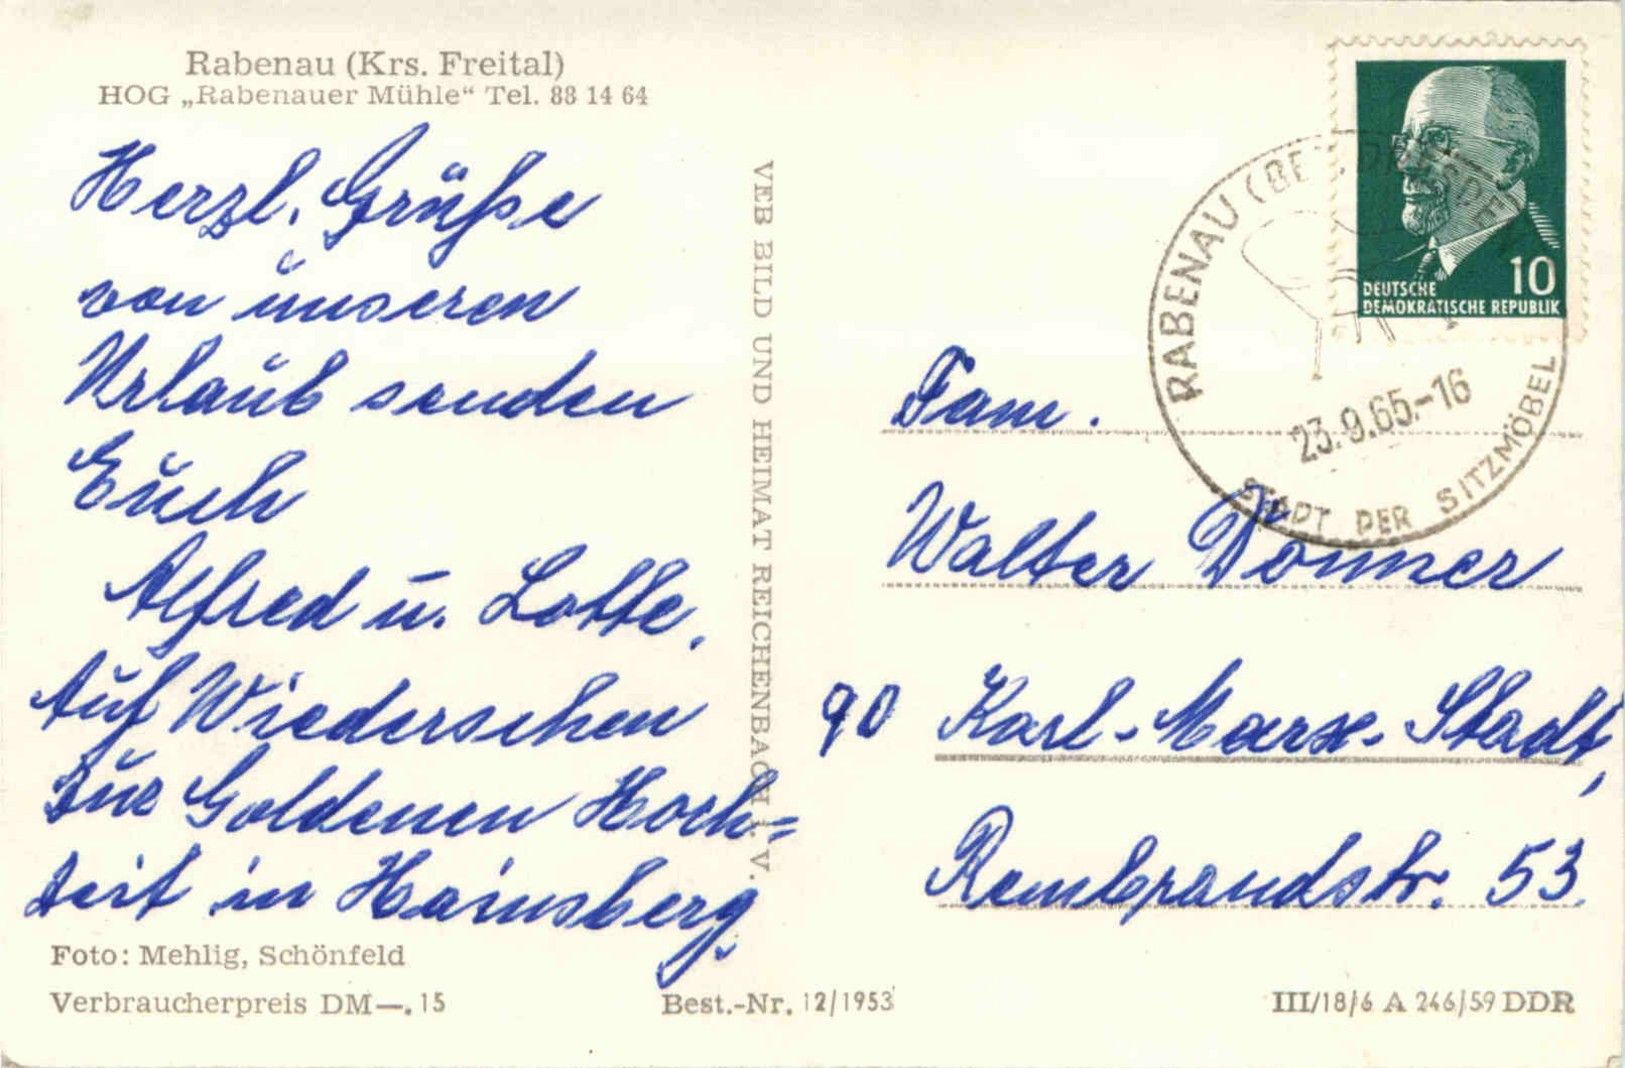 Rabenau (Krs. Freital)
HOG „Rabenauer Mühle“ Tel. 88 14 64
Herzl. Grüße
von unseren
Urlaub senden
Euch
Alfred u. Lotte.
Auf Wiedersehen
zur Goldenen Hoch=
zeit in Hainsberg.
Foto: Mehlig, Schönfeld
Verbraucherpreis DM—.15
Best.-Nr. 12/1953
VEB BILD UND HEIMAT REICHENBACH I. V.
DEUTSCHE
DEMOKRATISCHE REPUBLIK
10
RABENAU (BEZ. DRESDEN)
23.9.65.-16
STADT DER SITZMÖBEL
Fam.
Walter Donner
90 Karl-Marx-Stadt,
Rembrandstr. 53.
III/18/6 A 246/59 DDR